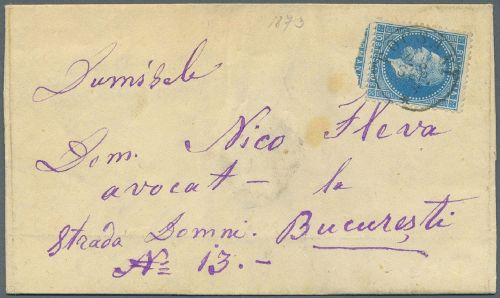 1873
Dom. Nico Fleva
avocat – la
Strada Domni. Bucureşti
№ 13.–